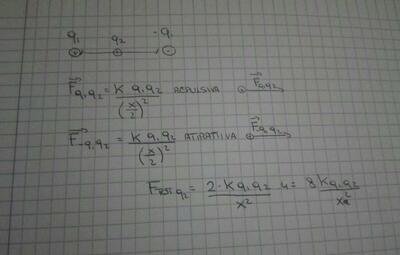 q₁ q₂ -q₁
⊕ ⊕ ⊖
F⃗q₁q₂ = K q₁q₂ / (x/2)² REPULSIVA ⊕ F⃗q₁q₂
F⃗-q₁q₂ = K q₁q₂ / (x/2)² ATIRATIIVA ⊕ F⃗q₁q₂
q₂ = 2·Kq₁q₂ / x² 4 = 8Kq₁q₂ / x²